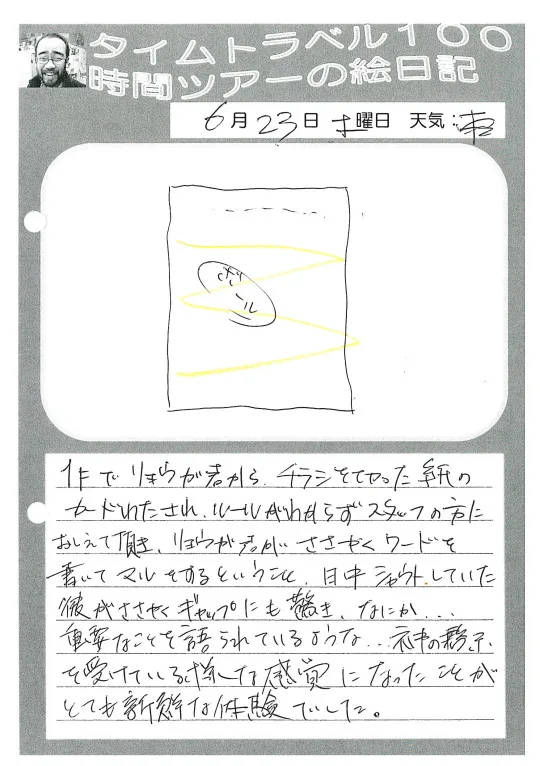 タイムトラベル100
時間ツアーの絵日記
6月23日 土曜日 天気:
ール
1Fでリョウが君から、チラシをてやった紙の
カードわたされ、ルールがわからずスタッフの方に
おしえて頂き、リョウが君がささやくワードを
書いてマルをするということ、日中シャウトしていた
彼がささやくギャップにも驚き、なにか...
重要なことを語られているような...ネ申の啓示
を受けている様な感覚になったことが
とても新鮮な体験でした。